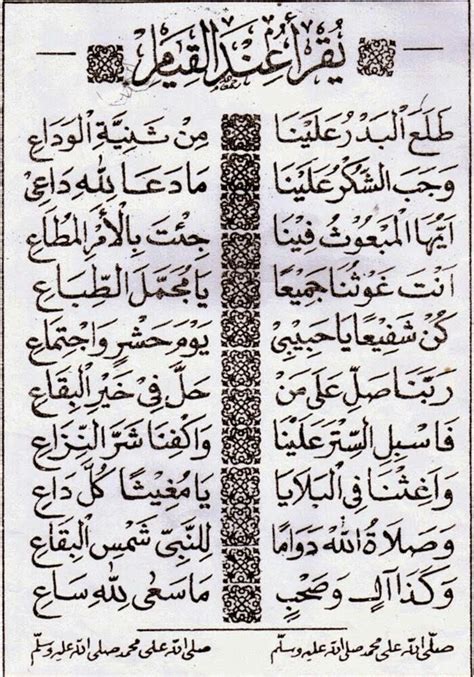 يُقْرَأُ عِنْدَ الْقِيَامِ
طَلَعَ الْبَدْرُ عَلَيْنَا مِنْ ثَنِيَّةِ الْوَدَاعِ
وَجَبَ الشُّكْرُ عَلَيْنَا مَادَعَا لِلّٰهِ دَاعِيْ
اَيُّهَا الْمَبْعُوْثُ فِيْنَا جِئْتَ بِالْأَمْرِ الْمُطَاعِ
اَنْتَ غَوْثُنَا جَمِيْعًا يَا مُجَمَّلَ الطِّبَاعِ
كُنْ شَفِيْعًا يَا حَبِيْبِيْ يَوْمَ حَشْرٍ وَاجْتِمَاعِ
رَبَّنَا صَلِّ عَلَى مَنْ حَلَّ فِيْ خَيْرِ الْبِقَاعِ
فَاسْبِلِ السِّتْرَ عَلَيْنَا وَاكْفِنَا شَرَّ النِّزَاعِ
وَاغِثْنَا فِي الْبَلَايَا يَا مُغِيْثًا كُلَّ دَاعِ
وَصَلَاةُ اللّٰهِ دَوَامًا لِلنَّبِيِّ شَمْسِ الْبِقَاعِ
وَكَذَا آلٍ وَصَحْبٍ مَاسَعٰى لِلّٰهِ سَاعِ
صَلَّى اللّٰهُ عَلَى مُحَمَّد صَلَّى اللّٰهُ عَلَيْهِ وَسَلَّمْ صَلَّى اللّٰهُ عَلَى مُحَمَّد صَلَّى اللّٰهُ عَلَيْهِ وَسَلَّمْ